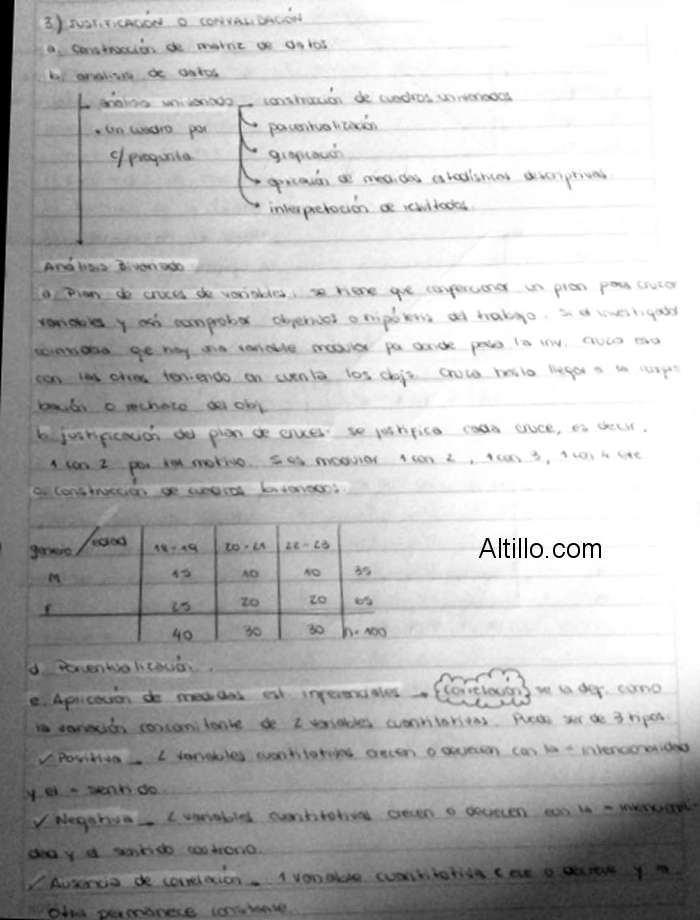 3) JUSTIFICACIÓN O CONVALIDACIÓN
a. Construcción de matriz de datos
b. análisis de datos
análisis univariado construcción de cuadros univariados
• un cuadro por porcentualización
c/pregunta graficación
aplicación de medidas estadísticas descriptivas
interpretación de resultados
Análisis Bivariado
a. Plan de cruces de variables: se tiene que confeccionar un plan para cruzar
variables y así comprobar objetivos o hipótesis del trabajo. Si el investigador
considera que hay una variable modular pa donde pasa la inv. cruza esa
con las otras teniendo en cuenta los objs. cruza hasta llegar a la
o rechazo del obj.
b. justificación del plan de cruces: se justifica cada cruce, es decir,
1 con 2 por tal motivo. Si es modular 1 con 2, 1 con 3, 1 con 4 etc
c. construcción de cuadros bivariados.
genero/edad 18-19 20-21 22-23
M 15 10 10 35
F 25 20 20 65
40 30 30 n=100
Altillo.com
d. Porcentualización.
e. Aplicación de medidas est inferenciales → correlación se la def. como
la variación concomitante de 2 variables cuantitativas. Puede ser de 3 tipos:
✓ Positiva → 2 variables cuantitativas crecen o decrecen con la = intencionalidad
y el = sentido.
✓ Negativa → 2 variables cuantitativas crecen o decrecen con la = intencionali
dad y el sentido contrario.
✓ Ausencia de correlación → 1 variable cuantitativa crece o decrece y la
otra permanece constante.